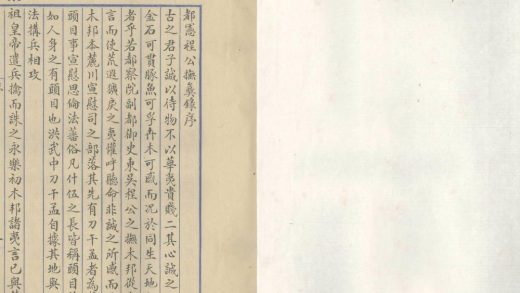 都憲程公撫彝錄序
古之君子誠以待物不以華彝貴賤二其心誠之
金石可貫豚魚可孚卉木可感而况於同生天地
者乎若都察院副都御史東吳程公之撫木邦從
言而使荒遐獷戾之夷懽呼聽命非誠之所感而
木邦本麓川宣慰司之部落其先有刀干孟者為
頭目事宣慰思倫法蕃俗凡什伍之長皆稱頭目
如人身之有頭目也洪武中刀干孟自據其地與
法構兵相攻
祖皇帝遣兵擒而誅之永樂初木邦諸夷言已與其